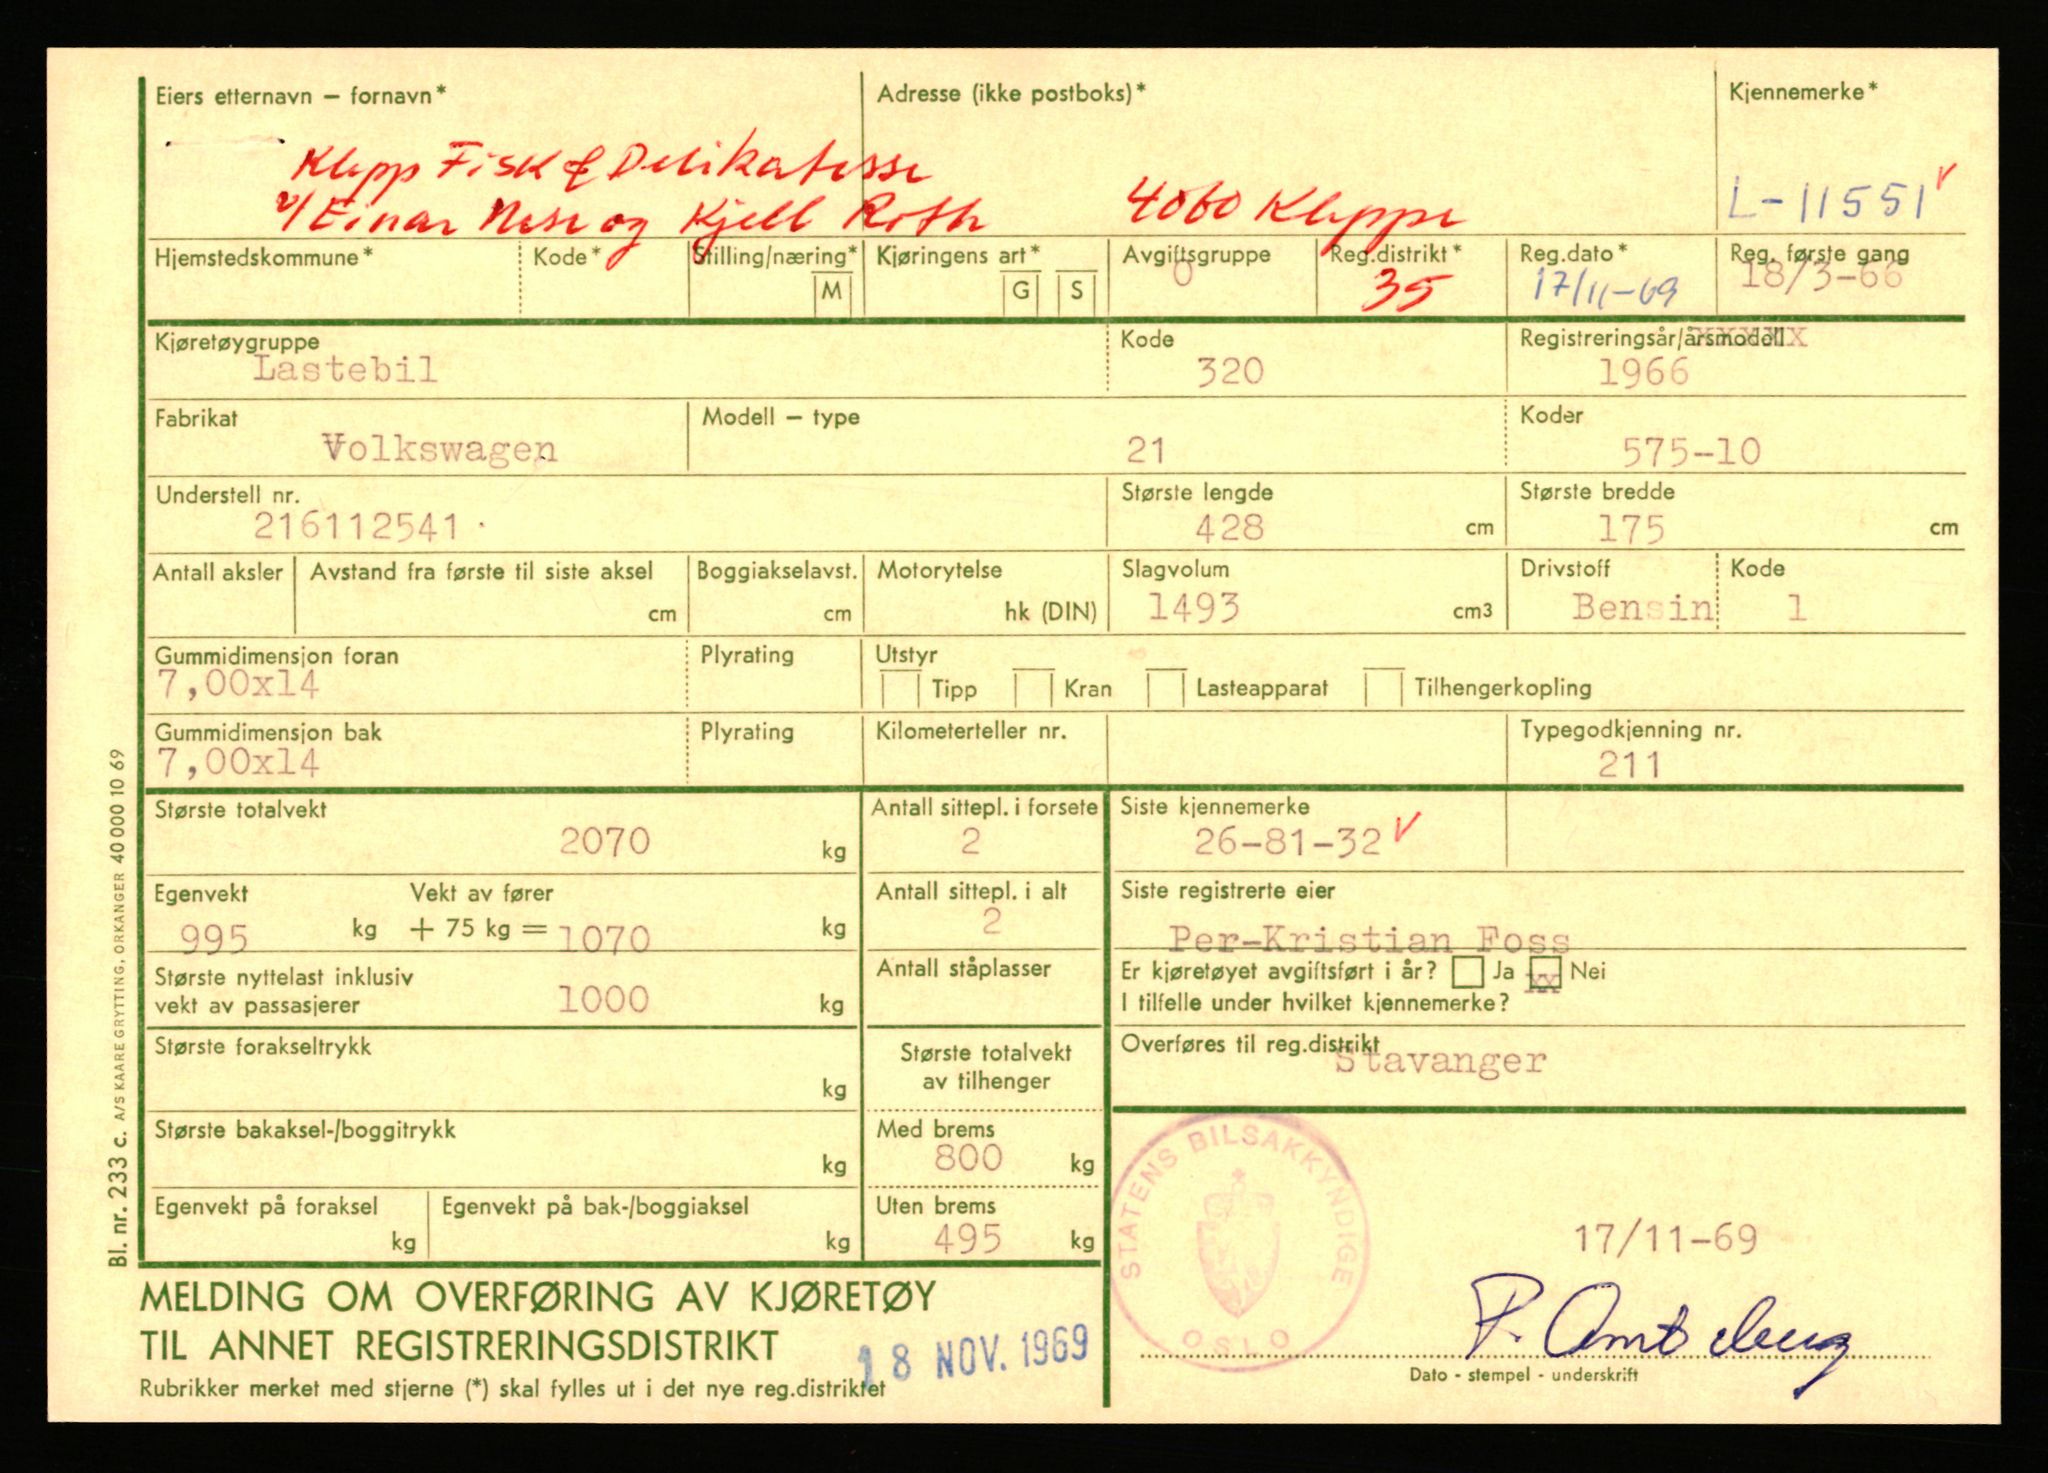 Eiers etternavn – fornavn* Adresse (ikke postboks)* Kjennemerke*
Klepp Fisk & Delikatesse
v/ Einar Nese og Kjell Roth 4060 Kleppe L-11551
Hjemstedskommune* Kode* Stilling/næring* M Kjøringens art* G S Avgiftsgruppe 0 Reg.distrikt* 35 Reg.dato* 17/11-69 Reg. første gang 18/3-66
Kjøretøygruppe Kode Registreringsår/årsmodell
Lastebil 320 1966
Fabrikat Modell – type Koder
Volkswagen 21 575-10
Understell nr. Største lengde Største bredde
216112541 428 cm 175 cm
Antall aksler Avstand fra første til siste aksel Boggiakselavst. Motorytelse Slagvolum Drivstoff Kode
cm cm hk (DIN) 1493 cm3 Bensin 1
Gummidimensjon foran Plyrating Utstyr
7,00x14 Tipp Kran Lasteapparat Tilhengerkopling
Gummidimensjon bak Plyrating Kilometerteller nr. Typegodkjenning nr.
7,00x14 211
Største totalvekt Antall sittepl. i forsete Siste kjennemerke
2070 kg 2 26-81-32
Egenvekt Vekt av fører Antall sittepl. i alt Siste registrerte eier
995 kg + 75 kg = 1070 kg 2 Per-Kristian Foss
Største nyttelast inklusiv Antall ståplasser Er kjøretøyet avgiftsført i år? Ja xx Nei
vekt av passasjerer 1000 kg I tilfelle under hvilket kjennemerke?
Største forakseltrykk kg Største totalvekt Overføres til reg.distrikt
av tilhenger Stavanger
Største bakaksel-/boggitrykk kg Med brems
800 kg
Egenvekt på foraksel kg Egenvekt på bak-/boggiaksel kg Uten brems
495 kg
STATENS BILSAKKYNDIGE
OSLO
17/11-69
MELDING OM OVERFØRING AV KJØRETØY
TIL ANNET REGISTRERINGSDISTRIKT
18 NOV. 1969
Dato - stempel - underskrift
Rubrikker merket med stjerne (*) skal fylles ut i det nye reg.distriktet
Bl. nr. 233 c. A/S KAARE GRYTTING, ORKANGER 40000 10 69